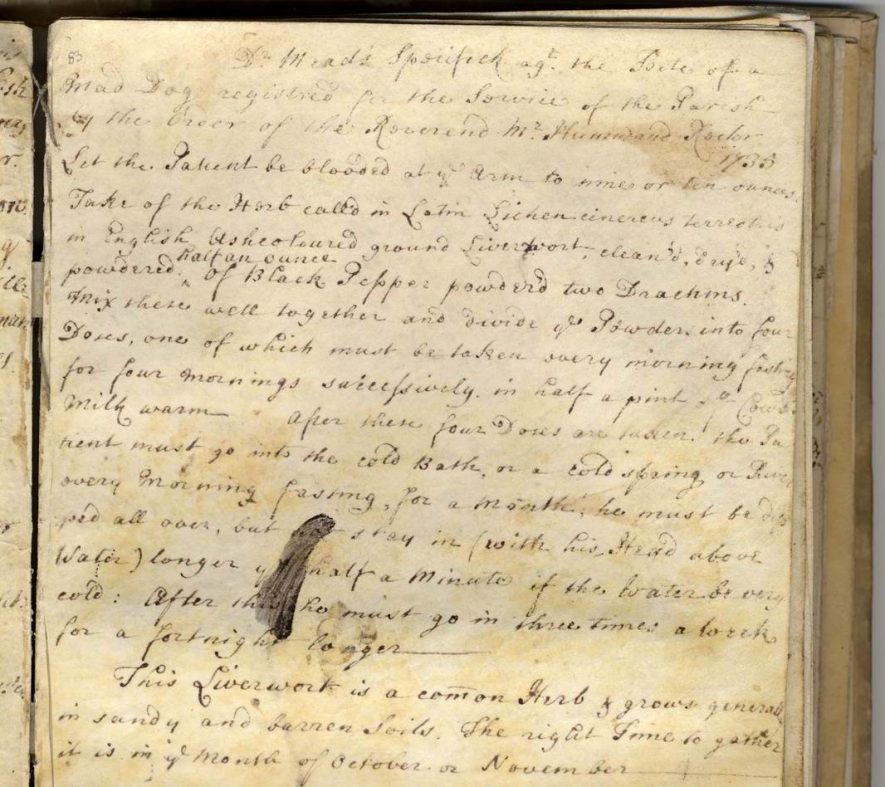 83
Dr Mead's Specifick agt. the Bite of a
Mad Dog registred for the Service of the Parish
By the Order of the Reverend Mr. Rector
1735
Let the Patient be blooded at ye Arm to nine or ten ounces.
Take of the Herb call'd in Latin Lichen cinereus terrestris
in English Ashcoloured ground Liverwort, clean'd, dry'd, &
half an ounce
powdered, of Black Pepper powder'd two Drachms.
Mix these well together and divide ye Powder into four
Doses, one of which must be taken every morning fasting
for four Mornings successively. in half a pint Cows
Milk warm After these four Doses are taken, the Pa
tient must go into the cold Bath, or a cold spring or River
every Morning fasting, for a Month; he must be dip
ped all over, but not stay in (with his Head above
Water) longer yn half a Minute if the Water be very
cold: After this he must go in three times a Week
for a fortnight longer
This Liverwort is a comon Herb & grows generall
in sandy and barren Soils. The right Time to gather
it is in ye Month of October or November